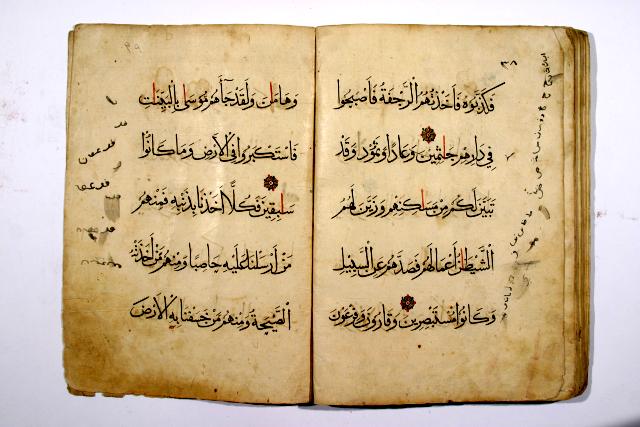 فَكَذَّبُوهُ فَأَخَذَتْهُمُ الرَّجْفَةُ فَأَصْبَحُوا
فِي دَارِهِمْ جَاثِمِينَ وَعَادًا وَثَمُودَ وَقَدْ
تَبَيَّنَ لَكُمْ مِنْ مَسَاكِنِهِمْ وَزَيَّنَ لَهُمُ
الشَّيْطَانُ أَعْمَالَهُمْ فَصَدَّهُمْ عَنِ السَّبِيلِ
وَكَانُوا مُسْتَبْصِرِينَ وَقَارُونَ وَفِرْعَوْنَ
وَهَامَانَ وَلَقَدْ جَآءَهُمْ مُوسَى بِالْبَيِّنَاتِ
فَاسْتَكْبَرُوا فِي الْأَرْضِ وَمَا كَانُوا
سَابِقِينَ فَكُلًّا أَخَذْنَا بِذَنْبِهِ فَمِنْهُمْ
مَنْ أَرْسَلْنَا عَلَيْهِ حَاصِبًا وَمِنْهُمْ مَنْ أَخَذَتْهُ
الصَّيْحَةُ وَمِنْهُمْ مَنْ خَسَفْنَا بِهِ الْأَرْضَ